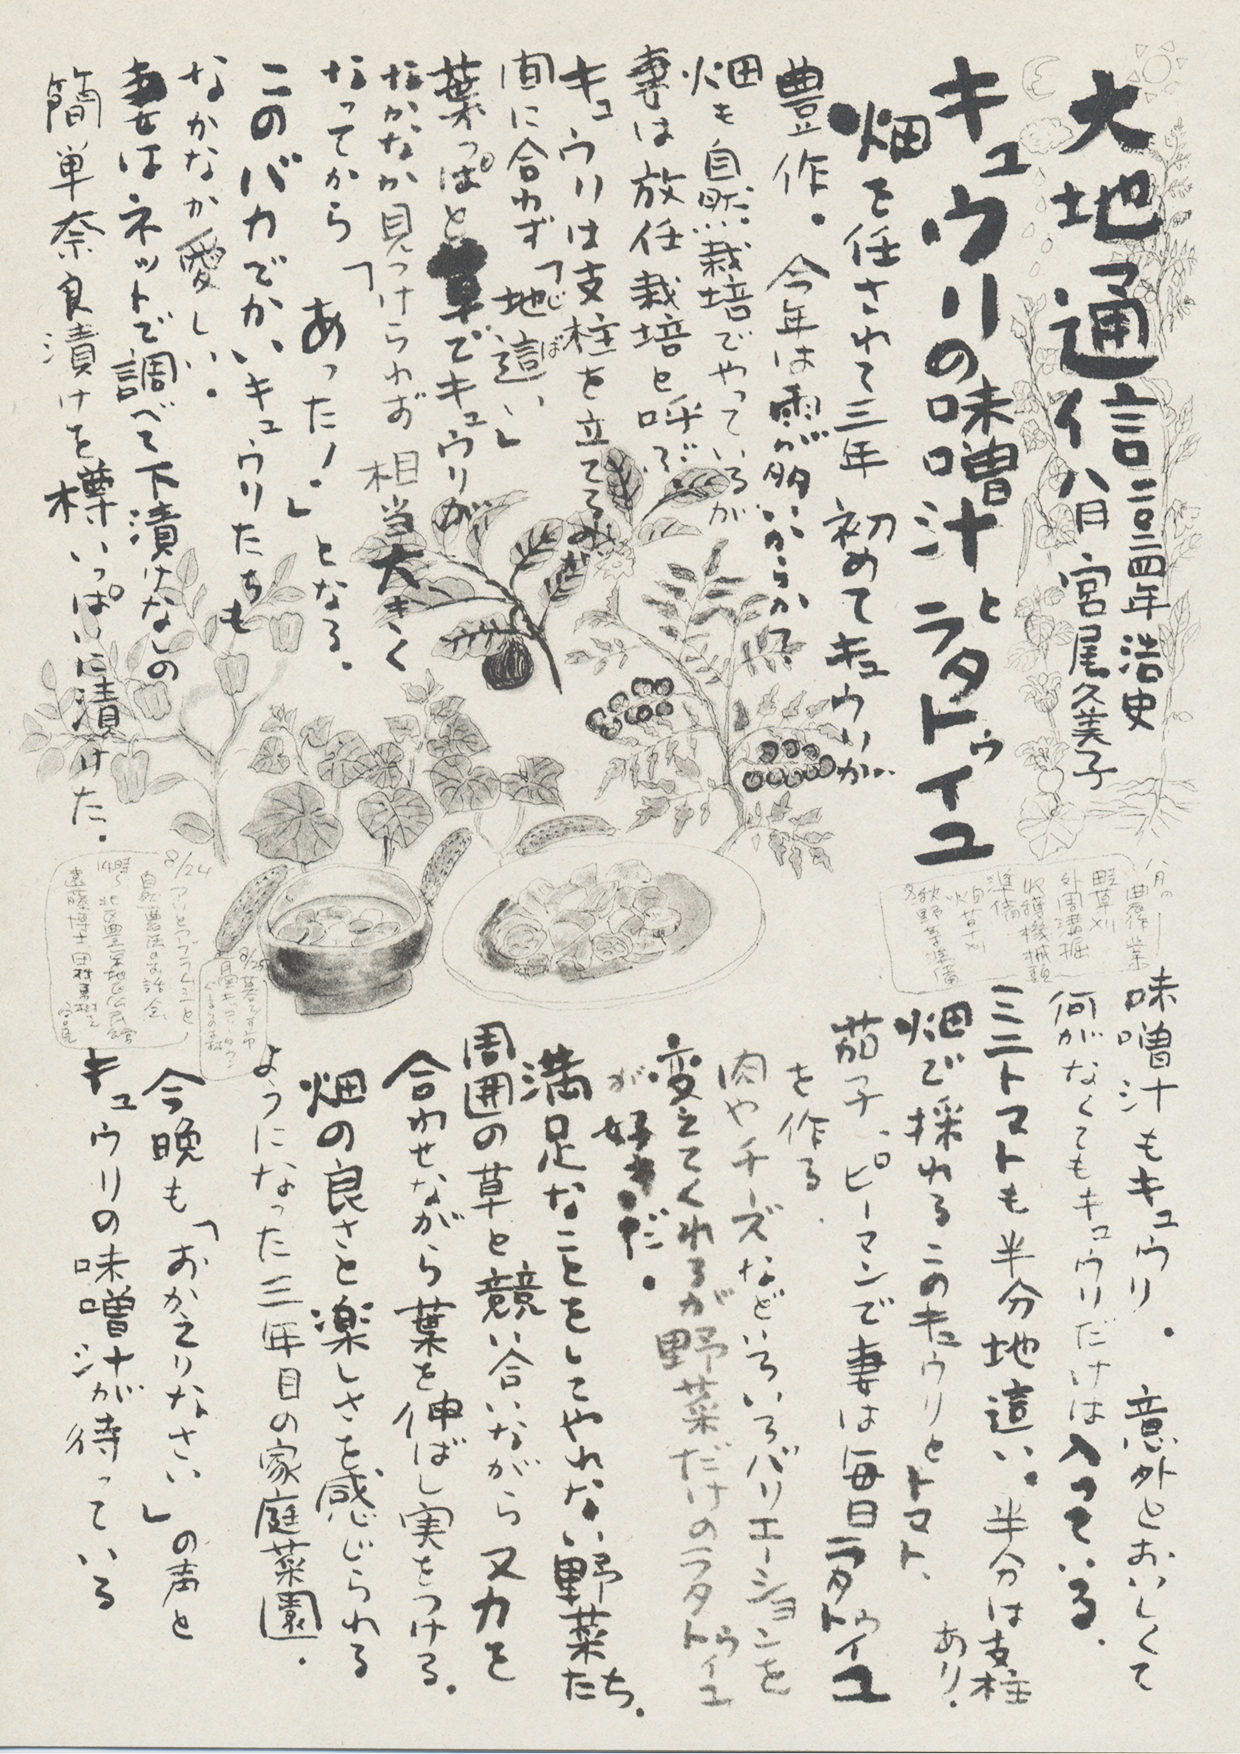 大地通信
二〇二四年
八月
浩史
宮尾久美子
キュウリの味噌汁とラタトゥイユ
畑を任されて三年 初めてキュウリが
豊作。今年は雨が多いからか?
畑も自然栽培でやっているが
妻は放任栽培と呼ぶ
キュウリは支柱を立てるのが
間に合わず「地這い」
じば
葉っぱと草でキュウリが
なかなか見つけられず 相当大きく
なってから「あった!」となる。
このバカでかいキュウリたちも
なかなか愛しい。
妻はネットで調べて下漬けなしの
簡単奈良漬けを樽いっぱいに漬けた。
八月の農作業
畦草刈
外周溝掘
収穫機械類
準備
畑草刈
秋野菜準備
8/24
自然農法のお話会
味噌汁もキュウリ。意外とおいしくて
何がなくてもキュウリだけは入っている。
ミニトマトも半分地這い。半分は支柱
あり。
畑で採れるこのキュウリとトマト、
茄子、ピーマンで妻は毎日ラタトゥイユ
を作る。
肉やチーズなどいろいろバリエーションを
変えてくれるが野菜だけのラタトゥイユ
が好きだ。
満足なことをしてやれない野菜たち。
周囲の草と競い合いながら又力を
合わせながら葉を伸ばし実をつける。
畑の良さと楽しさを感じられる
ようになった三年目の家庭菜園。
今晩も「おかえりなさい」の声と
キュウリの味噌汁が待っている